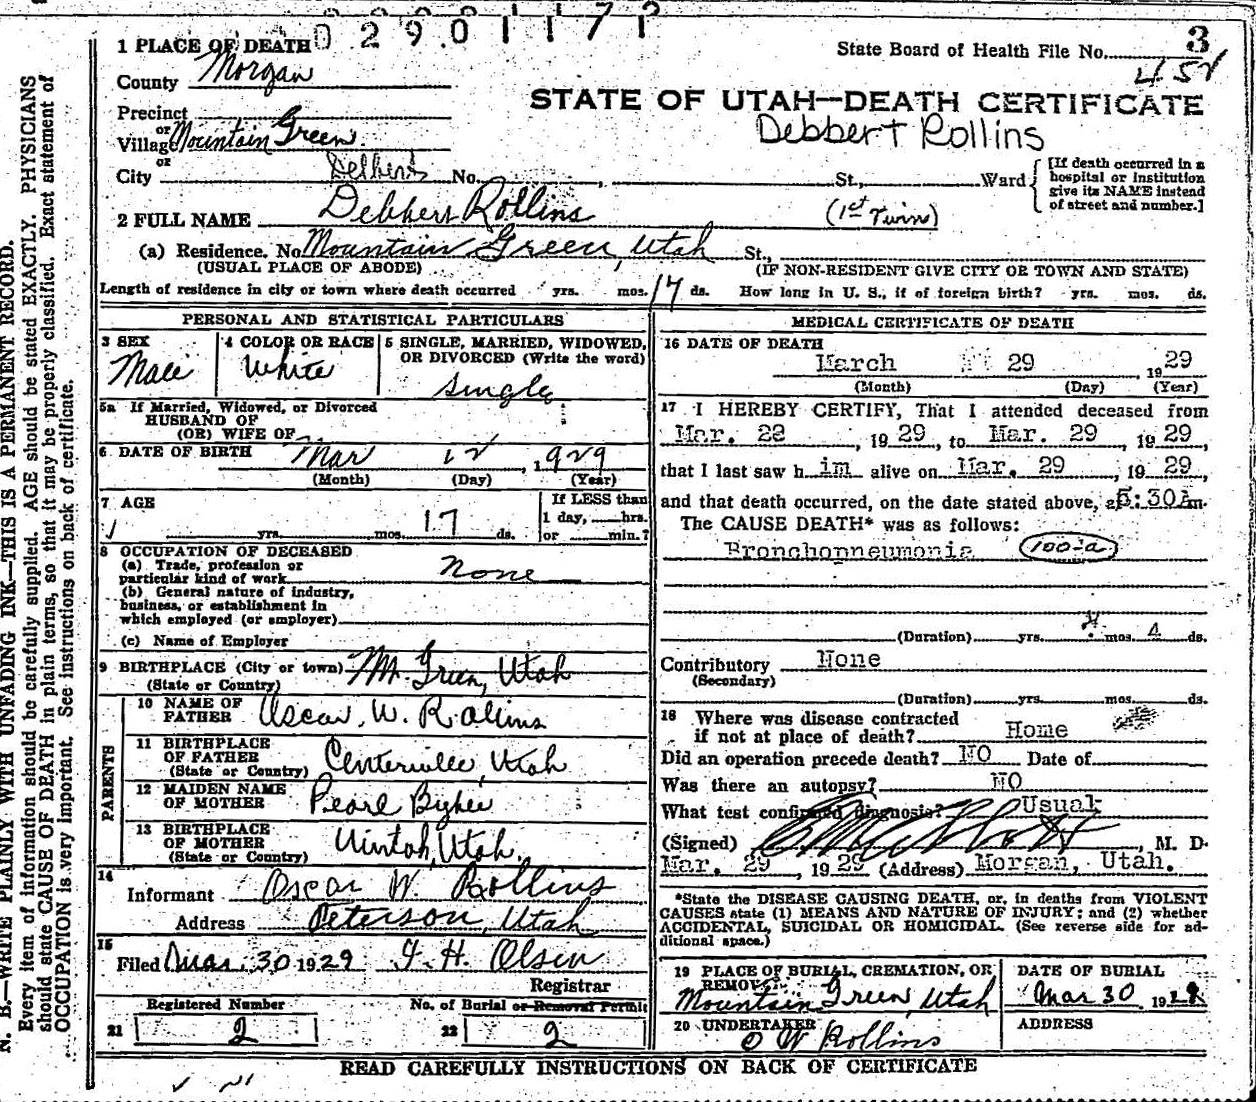 0 2 9 0 1 1 7 2
1 PLACE OF DEATH
State Board of Health File No. 3
452
County Morgan
STATE OF UTAH—DEATH CERTIFICATE
Debbert Rollins
Precinct
or
Village Mountain Green
or
City Delbert No. , St., Ward
[If death occurred in a hospital or institution give its NAME instead of street and number.]
2 FULL NAME Debbert Rollins (1st Twin)
(a) Residence. No. Mountain Green, Utah St.,
(USUAL PLACE OF ABODE) (IF NON-RESIDENT GIVE CITY OR TOWN AND STATE)
Length of residence in city or town where death occurred yrs. mos. 17 ds. How long in U. S., if of foreign birth? yrs. mos. ds.
PERSONAL AND STATISTICAL PARTICULARS
3 SEX
Male
4 COLOR OR RACE
White
5 SINGLE, MARRIED, WIDOWED, OR DIVORCED (Write the word)
Single
5a If Married, Widowed, or Divorced
HUSBAND OF
(OR) WIFE OF
6 DATE OF BIRTH Mar 12, 1929
(Month) (Day) (Year)
7 AGE
yrs. mos. 17 ds.
If LESS than
1 day, hrs.
or min.?
8 OCCUPATION OF DECEASED
(a) Trade, profession or
particular kind of work None
(b) General nature of industry,
business, or establishment in
which employed (or employer)
(c) Name of Employer
9 BIRTHPLACE (City or town) Mt. Green, Utah
(State or Country)
PARENTS
10 NAME OF
FATHER Oscar W. Rollins
11 BIRTHPLACE
OF FATHER Centerville, Utah
(State or Country)
12 MAIDEN NAME
OF MOTHER Pearl Bybee
13 BIRTHPLACE
OF MOTHER Uintah, Utah
(State or Country)
14
Informant Oscar W. Rollins
Address Peterson, Utah
15
Filed Mar. 30 1929 F. H. Olsen
Registrar
Registered Number No. of Burial or Removal Permit
21 2 22 2
MEDICAL CERTIFICATE OF DEATH
16 DATE OF DEATH
March 29 1929
(Month) (Day) (Year)
17 I HEREBY CERTIFY, That I attended deceased from
Mar. 28, 1929, to Mar. 29 1929,
that I last saw h im alive on Mar. 29, 1929,
and that death occurred, on the date stated above, at 5:30A m.
The CAUSE DEATH* was as follows:
Bronchopneumonia 100-a
(Duration) yrs. mos. 4 ds.
Contributory None
(Secondary)
(Duration) yrs. mos. ds.
18 Where was disease contracted
if not at place of death? Home
Did an operation precede death? NO Date of
Was there an autopsy? NO
What test confirmed diagnosis? Usual
(Signed) , M. D.
Mar. 29, 1929 (Address) Morgan, Utah.
*State the DISEASE CAUSING DEATH, or, in deaths from VIOLENT
CAUSES state (1) MEANS AND NATURE OF INJURY; and (2) whether
ACCIDENTAL, SUICIDAL OR HOMICIDAL. (See reverse side for ad-
ditional space.)
19 PLACE OF BURIAL, CREMATION, OR
REMOVAL
Mountain Green, Utah
DATE OF BURIAL
Mar 30 1929
20 UNDERTAKER
O W Rollins
ADDRESS
READ CAREFULLY INSTRUCTIONS ON BACK OF CERTIFICATE
N. B.—WRITE PLAINLY WITH UNFADING INK—THIS IS A PERMANENT RECORD.
Every item of information should be carefully supplied. AGE should be stated EXACTLY. PHYSICIANS
should state CAUSE OF DEATH in plain terms, so that it may be properly classified. Exact statement of
OCCUPATION is very important. See instructions on back of certificate.